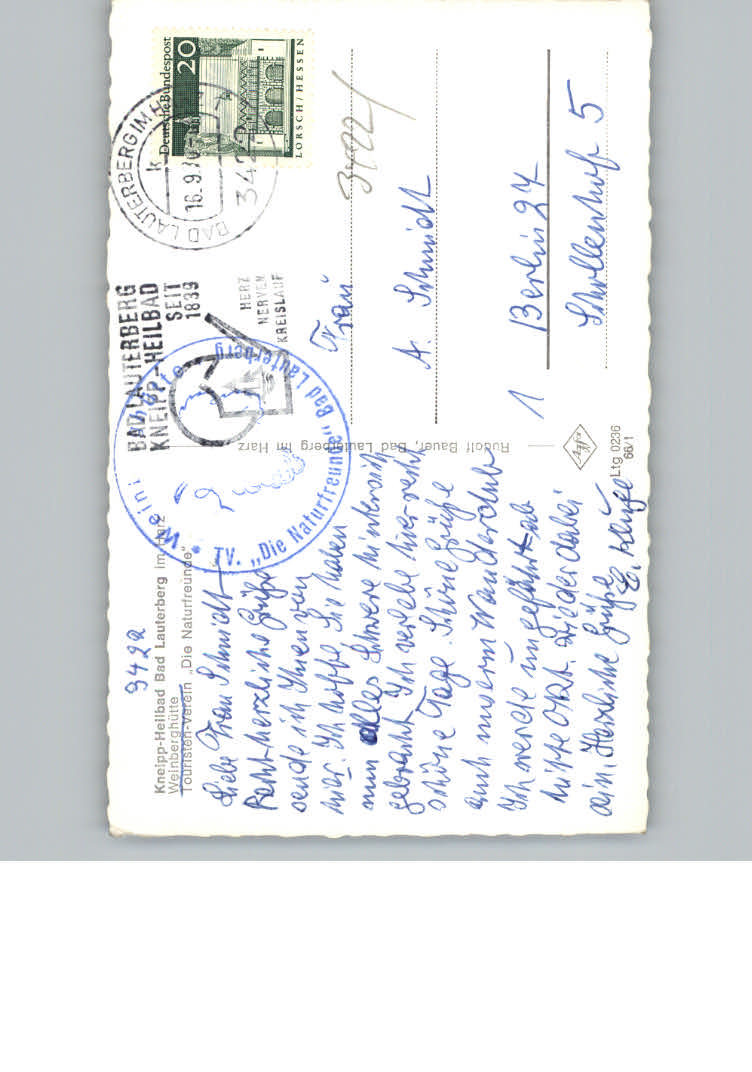 3422
Kneipp-Heilbad Bad Lauterberg im Harz
Weinberghütte
Touristen-Verein „Die Naturfreunde“
Liebe Frau Schmidt
Recht herzliche Grüße
sende ich Ihnen von
hier. Ich hoffe Sie haben
nun alles Schwere hinter sich
gebracht. Ich verlebe hier recht
schöne Tage. Schöne Grüße
auch unserm Wanderclub
Ich werde ungefähr ab
mitte Okt. wieder dabei
sein. Herzliche Grüße
E.
TV. „Die Naturfreunde“ Bad Lauterberg
BAD LAUTERBERG
KNEIPP-HEILBAD
SEIT
1839
HERZ
NERVEN
KREISLAUF
BAD LAUTERBERG IM
16.9.
3422
Deutsche Bundespost
20
LORSCH/HESSEN
Rudolf Bauer, Bad Lauterberg im Harz
3422/
Frau
A. Schmidt
1 Berlin 27
Schollenhof 5
Agfa
Ltg 0236
66/1